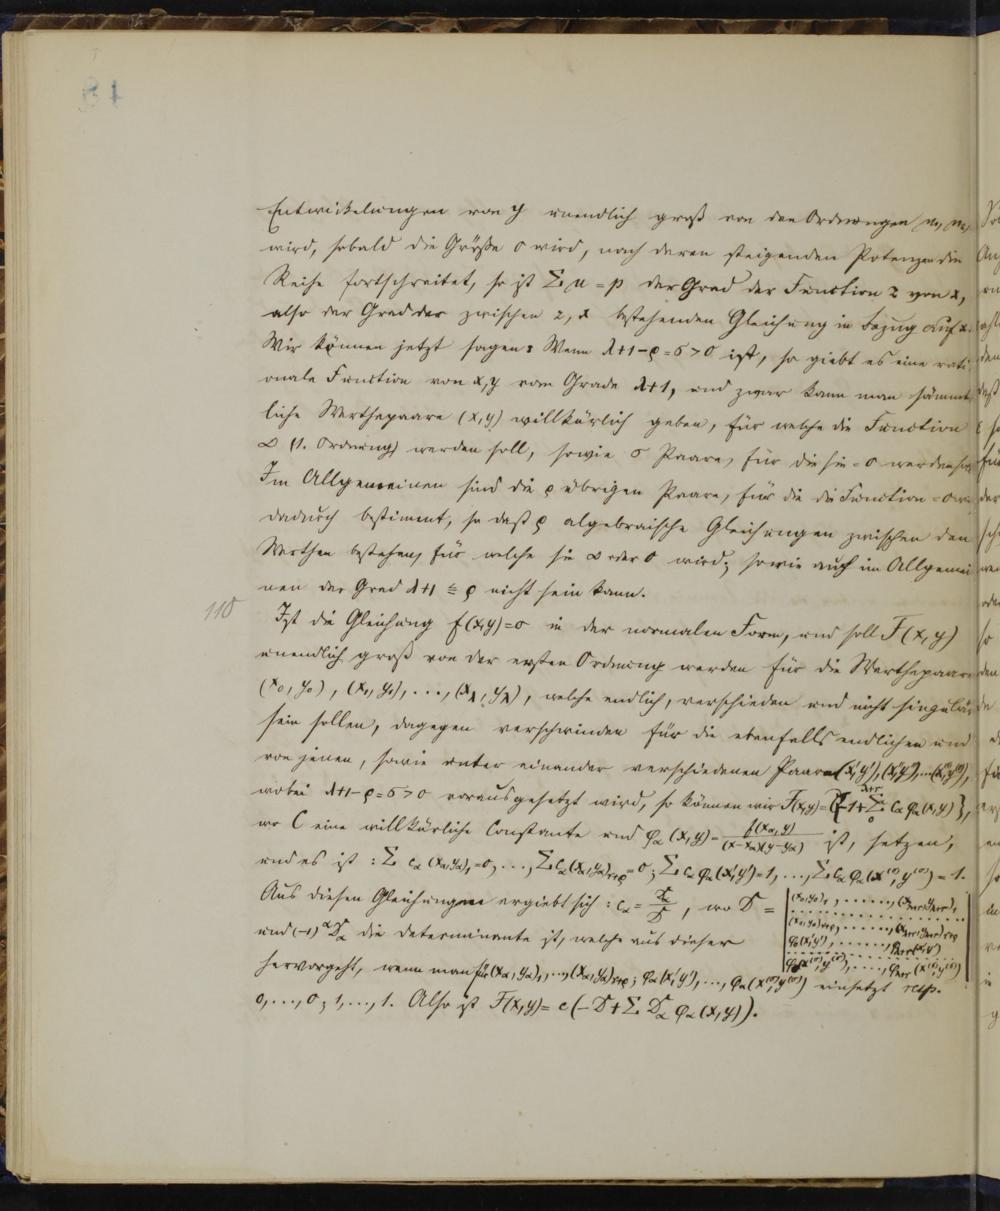 48
Entwickelungen von y unendlich groß von den Ordnungen m₁, m₂,
wird, sobald die Größe 0 wird, nach deren steigenden Potenzen die
Reihe fortschreitet, so ist Σμ = p der Grad der Function z von x,
also der Grad der zwischen z, x bestehenden Gleichung in Bezug auf x.
Wir können jetzt sagen: Wenn λ+1-ρ=σ>0 ist, so giebt es eine rati
onale Function von x, y vom Grade λ+1, und zwar kann man sämmt
liche Werthepaare (x, y) willkürlich geben, für welche die Function
∞ (1. Ordnung) werden soll, sowie σ Paare, für die sie = 0 werden soll
Im Allgemeinen sind die ρ übrigen Paare, für die die Function = 0
dadurch bestimmt, so daß ρ algebraische Gleichungen zwischen den
Werthen bestehen, für welche sie ∞ oder 0 wird; sowie auch im Allgemei
nen der Grad λ+1 ≦ ρ nicht sein kann.
110
Ist die Gleichung f(x,y)=0 in der normalen Form, und soll F(x, y)
unendlich groß von der ersten Ordnung werden für die Werthepaare
(x₀, y₀), (x₁, y₁), ..., (x_λ, y_λ), welche endlich, verschieden und nicht singulär
sein sollen, dagegen verschwinden für die ebenfalls endlichen und
von jenen, sowie unter einander verschiedenen Paare (x', y'), (x'', y''), ... (x^(σ), y^(σ)),
wobei λ+1-ρ=σ>0 vorausgesetzt wird, so können wir F(x,y)= C{-1+Σ c_α φ_α(x,y)},
wo C eine willkürliche Constante und φ_α (x,y) = f(x_α, y)/((x-x_α)(y-y_α)) ist, setzen,
und es ist: Σ c_α (x_α, y_α)₁ = 0, ..., Σ c_α (x_α, y_α) = 0; Σ c_α φ_α (x', y') = 1, ..., Σ c_α φ_α (x^(σ), y^(σ)) = 1.
Aus diesen Gleichungen ergiebt sich: c_α = D_α/D, wo D =
und (-1)^α D_α die Determinante ist, welche aus dieser
hervorgeht, wenn man für (x_α, y_α)₁, ..., (x_α, y_α); φ_α (x', y'), ..., φ_α (x^(σ), y^(σ)) einsetzt resp.
0, ..., 0; 1, ..., 1. Also ist F(x,y) = c(-D + Σ D_α φ_α (x, y)).